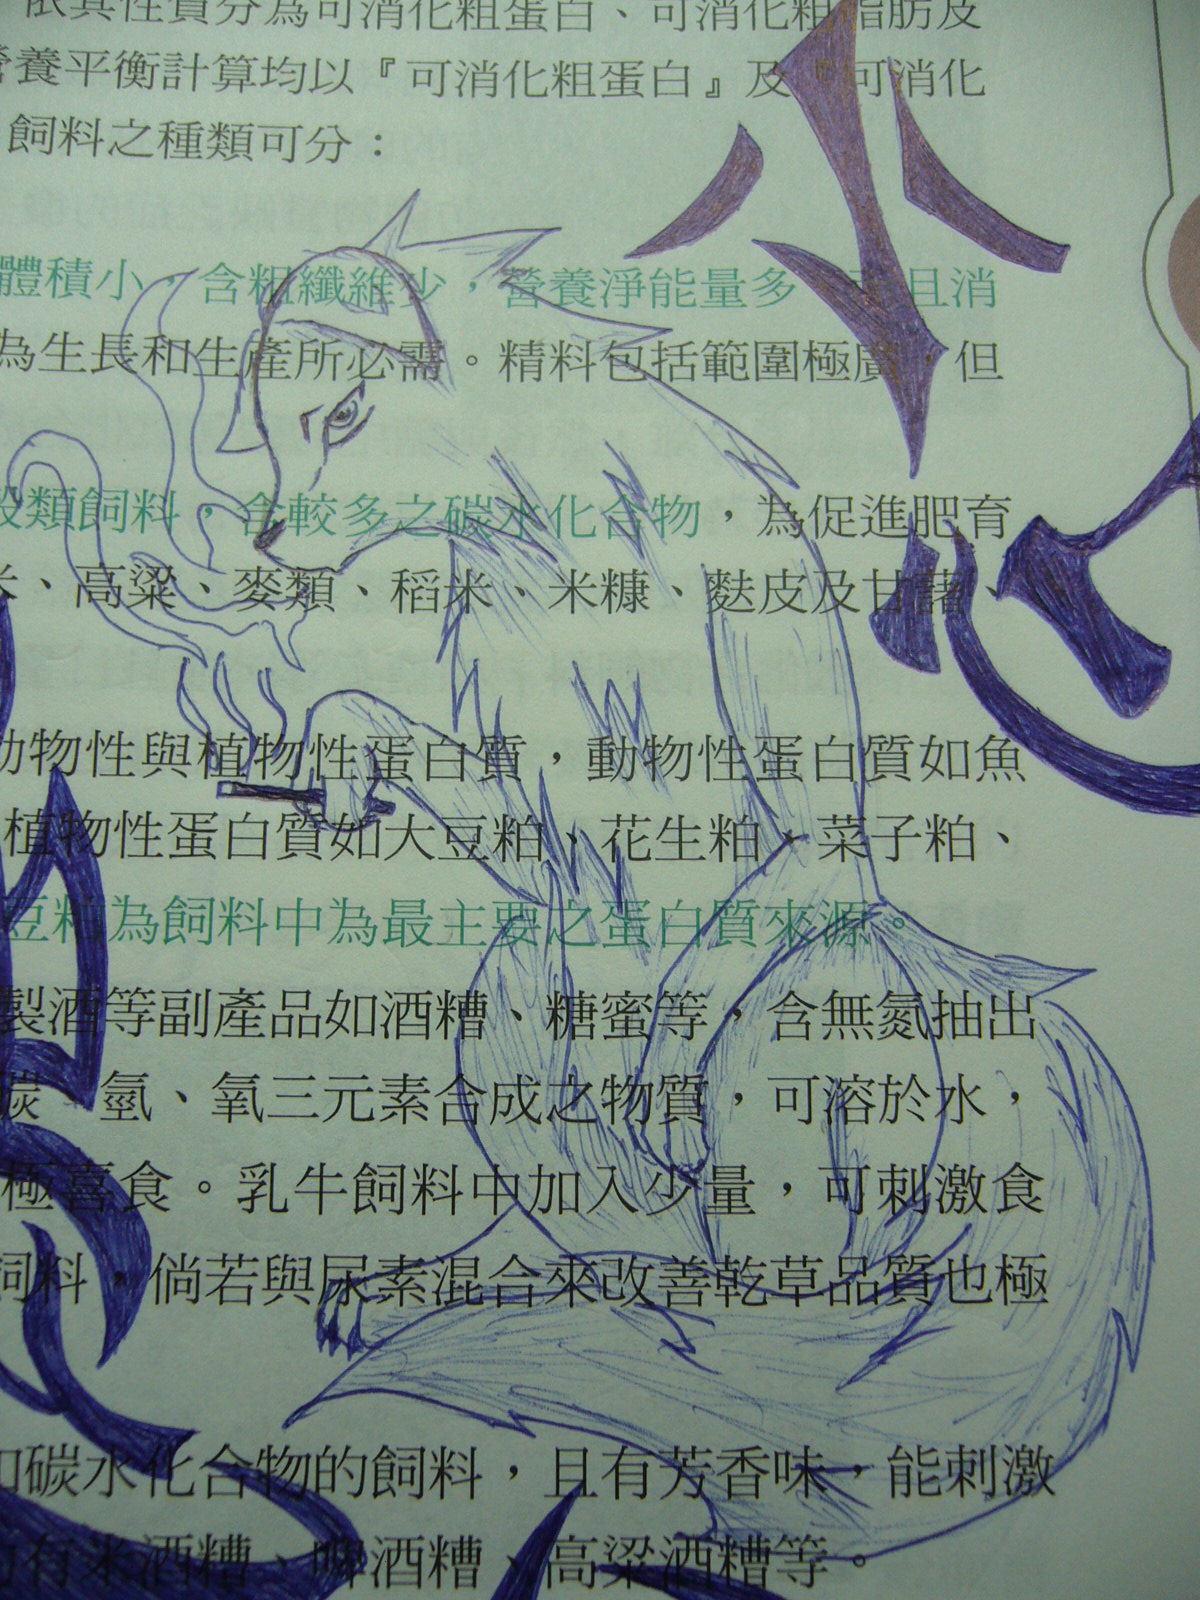 依其性質分為可消化粗蛋白、可消化粗脂肪及
營養平衡計算均以『可消化粗蛋白』及『可消化
飼料之種類可分：
體積小，含粗纖維少，營養淨能量多，且消
為生長和生產所必需。精料包括範圍極廣，但
穀類飼料，含較多之碳水化合物，為促進肥育
米、高粱、麥類、稻米、米糠、麩皮及甘藷、
動物性與植物性蛋白質，動物性蛋白質如魚
植物性蛋白質如大豆粕、花生粕、菜子粕、
豆粕為飼料中為最主要之蛋白質來源。
製酒等副產品如酒糟、糖蜜等，含無氮抽出
碳、氫、氧三元素合成之物質，可溶於水，
極喜食。乳牛飼料中加入少量，可刺激食
飼料，倘若與尿素混合來改善乾草品質也極
和碳水化合物的飼料，且有芳香味，能刺激
有米酒糟、啤酒糟、高粱酒糟等。